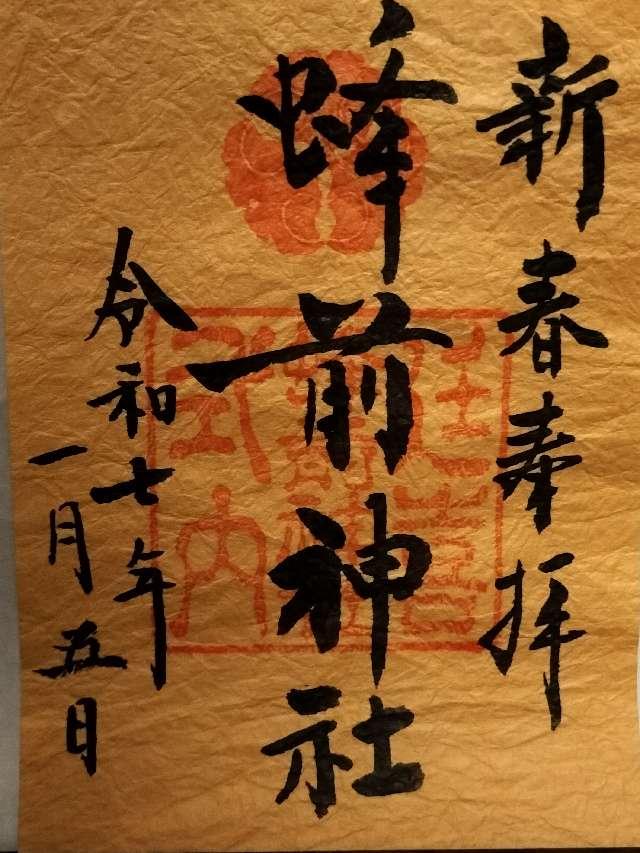 新春奉拝
蜂前神社
令和七年
一月五日
延喜
式内